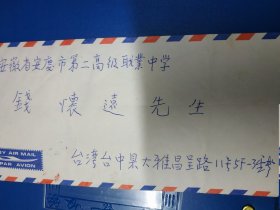 安徽省安慶市第二高級職業中学
錢懷遠先生
BY AIR MAIL
PAR AVION
台湾台中県大雅昌呈路11号5F-3